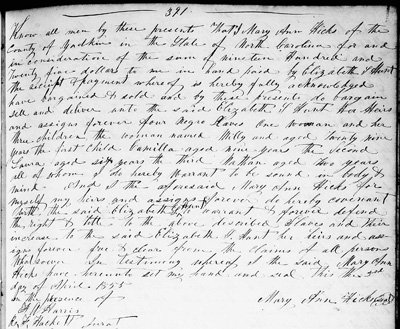 391.
Know all men by these presents That I Mary Ann Hicks of the
County of Yadkin in the State of North Carolina for and
in consideration of the sum of nineteen Hundred and
Twenty five dollars to me in hand paid by Elizabeth T Hunt
the receipt & payment whereof is hereby fully acknowledged
have bargained & sold and by these presents do bargain
sell and deliver unto the said Elizabeth T Hunt her Heirs
and assigns forever four Negro Slaves One woman and her
three children the woman named Milly and aged Twenty nine
years the first Child Camilla aged nine years the Second
Laura aged six years the third Nathan aged two years
all of whom I do hereby Warrant to be sound in body &
mind. And I the aforesaid Mary Ann Hicks for
myself my heirs and assigns forever do hereby covenant
with the said Elizabeth T Hunt to warrant & forever defend
the right & title to the above described Slaves and their
increase to the said Elizabeth T Hunt her heirs and as-
signs forever free & clear from the claims of all persons
Whatsoever In testimony whereof I the said Mary Ann
Hicks have hereunto set my hand and seal this the
day of April 1855
In the presence of
Mary Ann Hicks (Seal)
Harris
Hackett Jurat